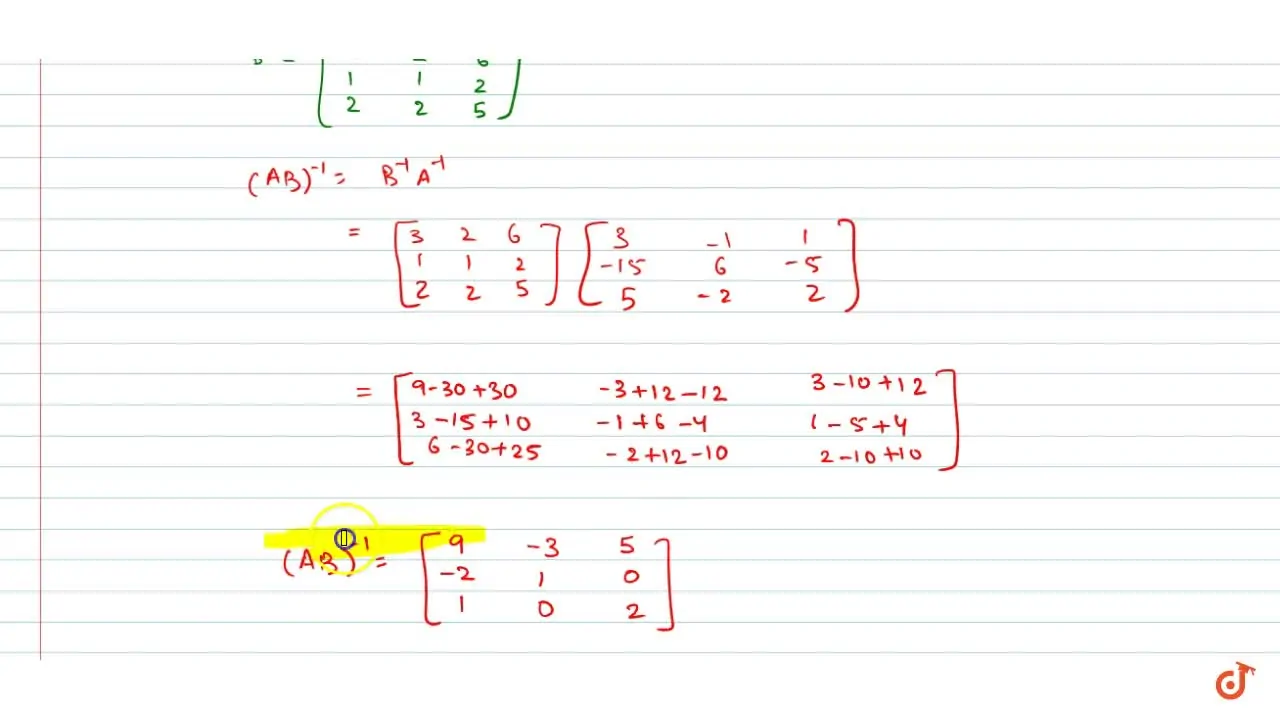 1 1 2
2 2 5
(AB)⁻¹ = B⁻¹ A⁻¹
= [3 2 6] [3 -1 1]
[1 1 2] [-15 6 -5]
[2 2 5] [5 -2 2]
= [9-30+30 -3+12-12 3-10+12]
[3-15+10 -1+6-4 1-5+4]
[6-30+25 -2+12-10 2-10+10]
(AB)⁻¹ = [9 -3 5]
[-2 1 0]
[1 0 2]